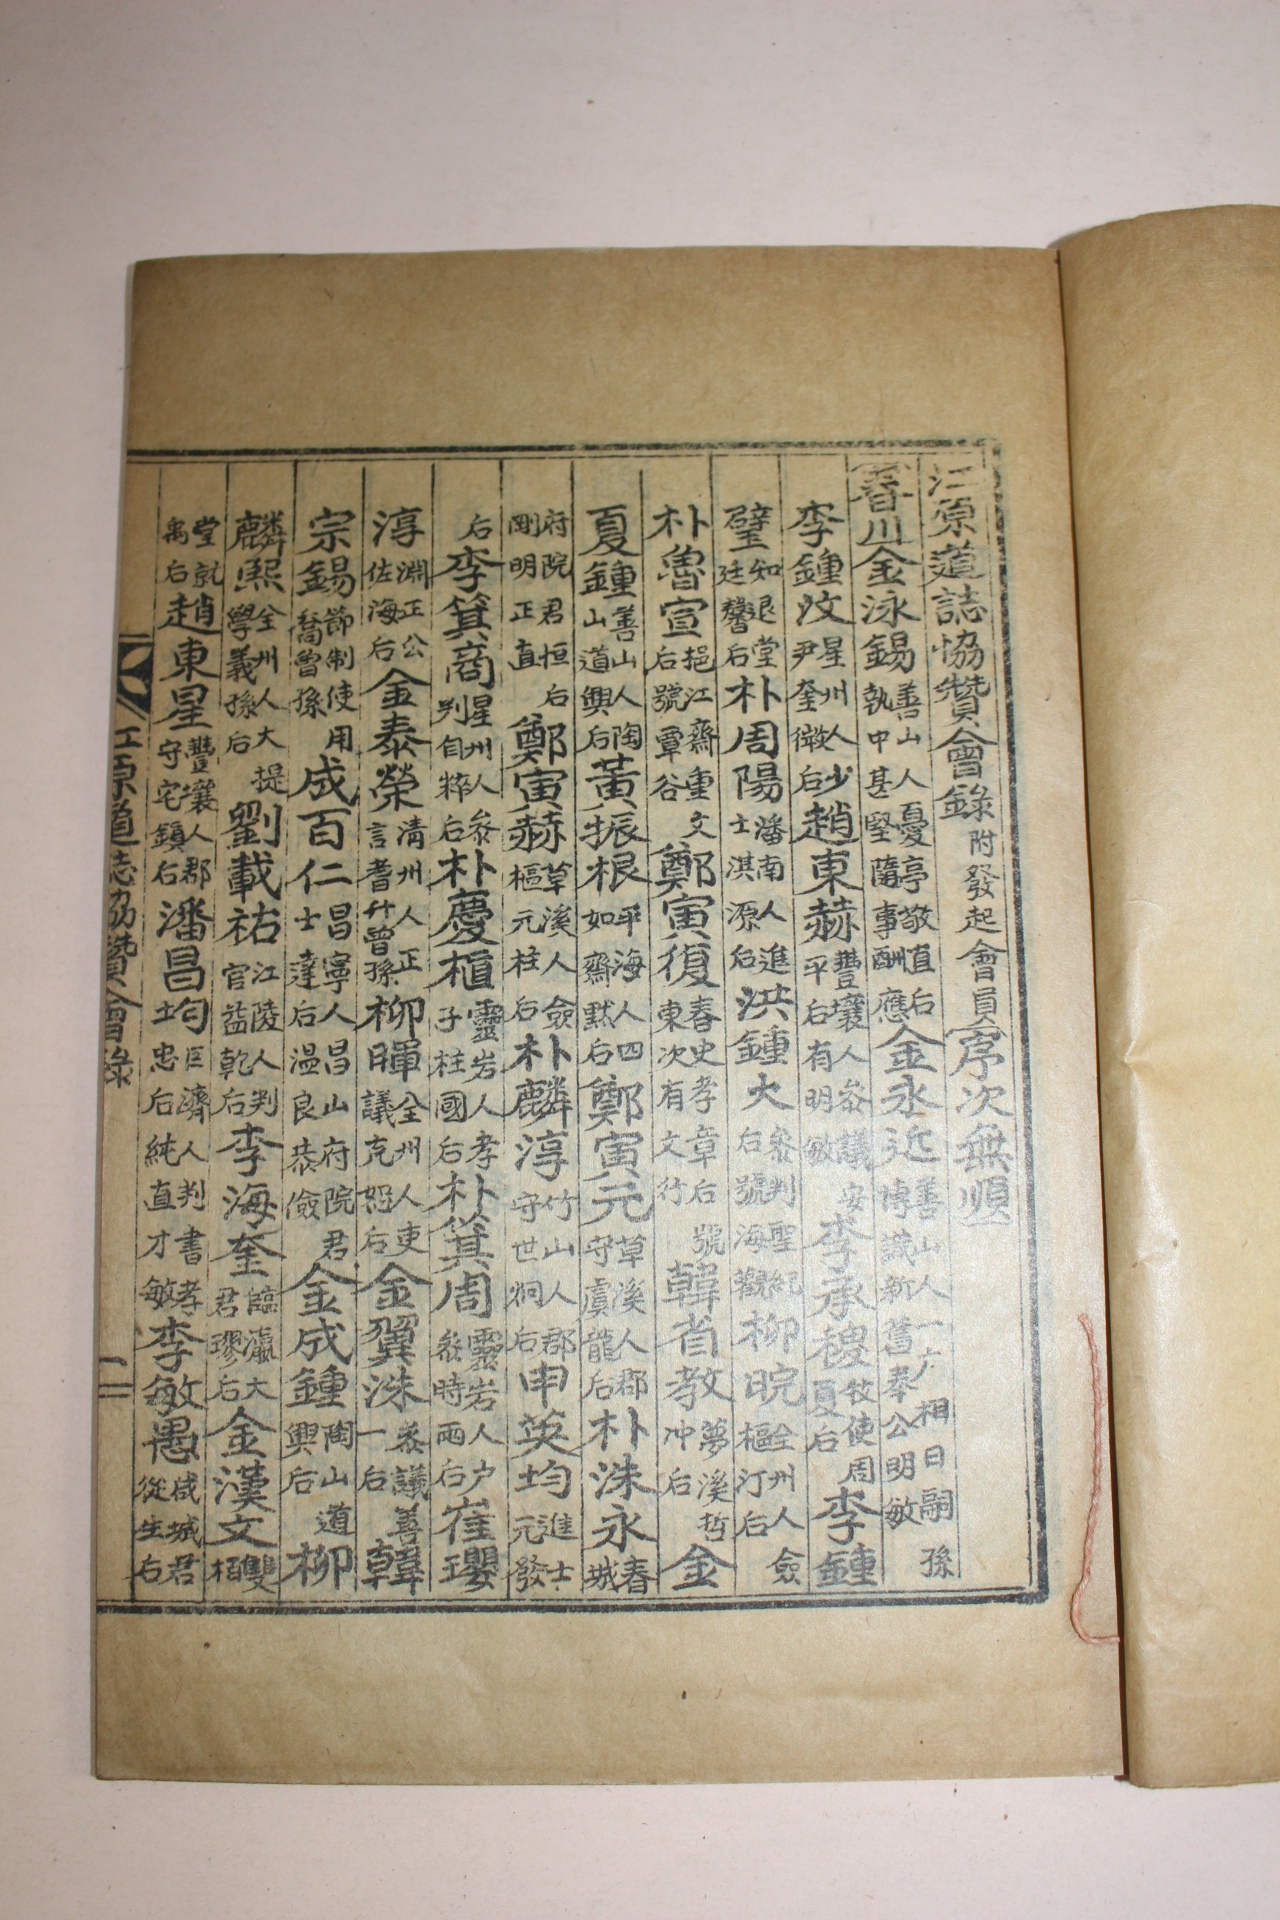 江原道誌協贊會錄 附發起會員 序次無順
春川 金泳錫 善山人憂亭敬直后執中甚堅隨事酬應 金永近 善山人一广相日嗣孫博識新舊奉公明敏
李鍾汶 星州人少尹奎徵后 趙東赫 豐壤人參議安平后有明敏 李承稷 牧使周夏后 李鍾
璧 知退堂廷馨后 朴周陽 潘南人進士淇源后 洪鍾大 參判聖紀后號海觀 柳晥 全州人僉樞汀后
朴魯宣 挹江齋重文后號覃谷 鄭寅復 春史孝章后號東次有文行 韓省教 夢溪哲冲后 金
夏鍾 善山人陶山道興后 黃振根 平海人四如齋默后 鄭寅元 草溪人郡守虞龍后 朴洙永 春城
府院君恒后剛明正直 鄭寅赫 草溪人僉樞元柱后 朴麟淳 竹山人郡守世炯后 申英均 進士元發
后 李箕商 星州人參判自粹后 朴慶楨 靈岩人孝子柱國后 朴箕周 靈岩人户參時雨后 崔瓔
淳 淵正公佐海后 金泰榮 清州人正言耆升曾孫 柳暉 全州人吏議克恕后 金翼洙 參議善一后 韓
宗錫 節制使用喬曾孫 成百仁 昌寧人昌山府院君士達后溫良恭儉 金成鍾 陶山道興后 柳
麟熙 全州人大提學義孫后 劉載祐 江陵人判官益乾后 李海奎 臨瀛大君璆后 金漢文 雙栢
堂就禹后 趙東星 豐壤人郡守宅鎮后 潘昌均 巨濟人判書孝士忠后純直才敏 李敏愚 咸城君從生后
江原道誌協贊會錄 一